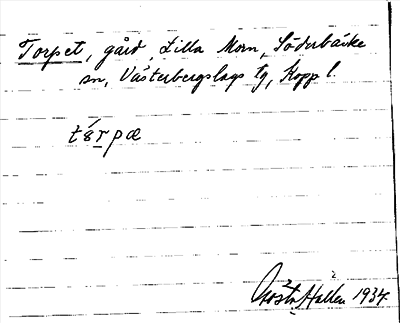 Torpet, gård, Lilla Morn, Söderbärke
sn, Västerbergslags tg, Kopp l.
tɞ́rpæ
Gösta Hallén 1934.